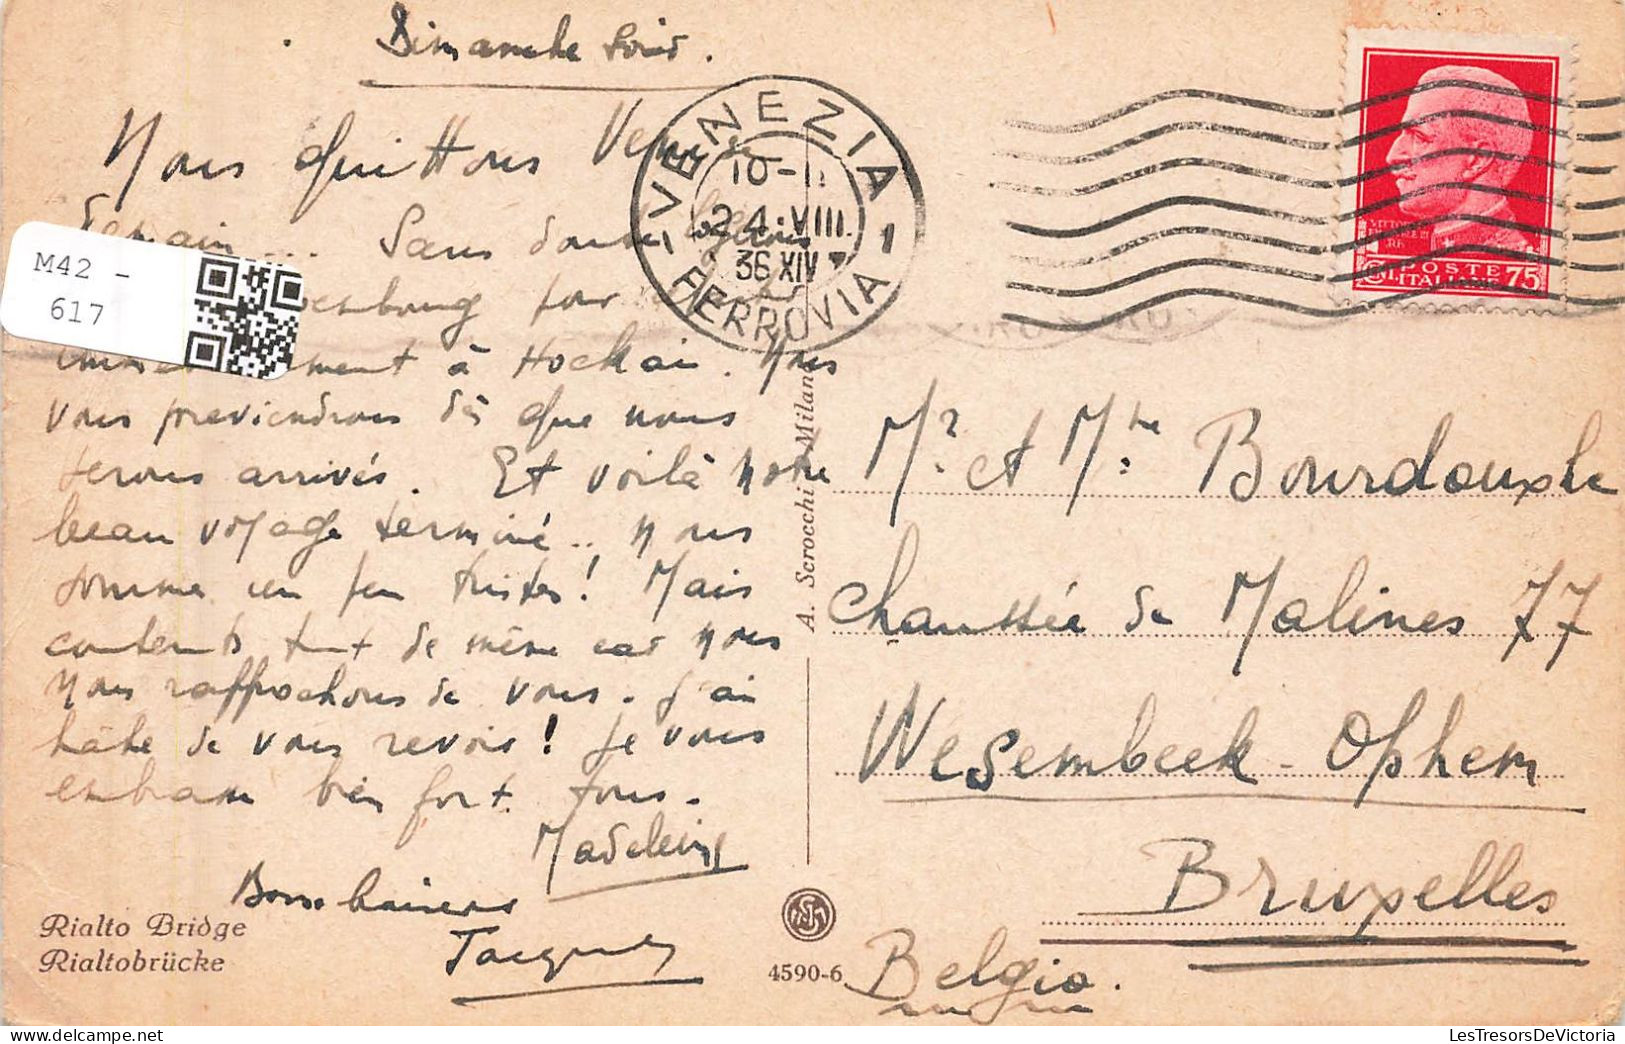 Dimanche soir.
Nous quittons Venise
demain... Sans doute logerons
à Luxembourg pour
immédiatement à Hockai. Nous
vous previendrons dès que nous
serons arrivés. Et voilà notre
beau voyage terminé.. Nous
somme un peu tristes! Mais
contents tout de même car nous
nous rapprochons de vous. J'ai
hâte de vous revoir! Je vous
embrasse bien fort tous.
Madeleine
Bons baisers
Jacques
Rialto Bridge
Rialtobrücke
M42 -
617
VENEZIA
10-11
24.VIII.
36 XIV
FERROVIA
POSTE
ITALIANE 75
A. Scrocchi Milano
4590-6
Mr. et Mme. Bourdouxhe
Chaussée de Malines 77
Wesembeek-Ophem
Bruxelles
Belgio.
LesTresorsDeVictoria